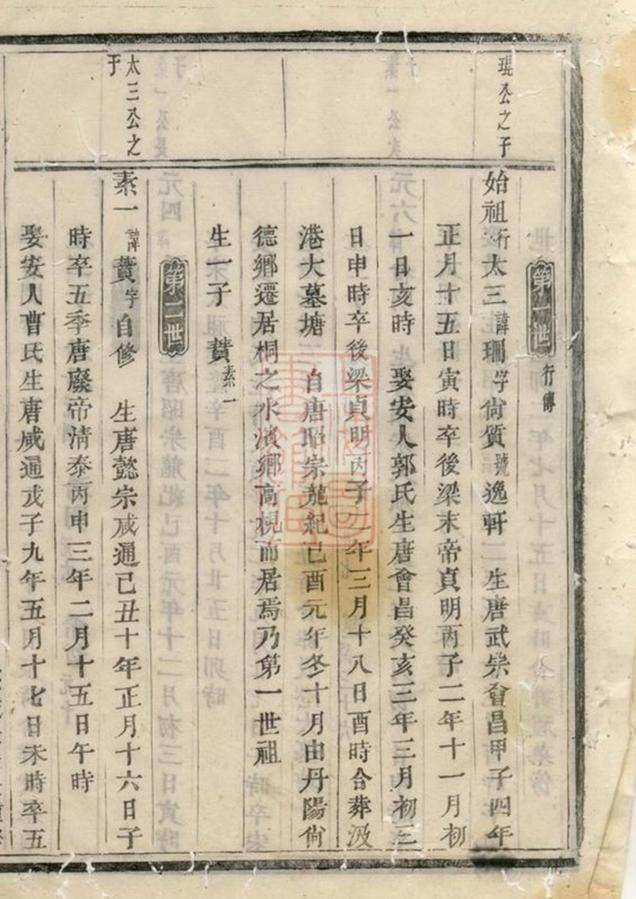 第一世 行傳
琨公之子
始祖行太三諱珊字尙質號逸軒 生唐武宗會昌甲子四年
正月十五日寅時卒後梁末帝貞明丙子二年十一月初
一日亥時 娶安人郭氏生唐會昌癸亥三年三月初三
日申時卒後梁貞明丙子二年三月十八日酉時合葬汲
港大墓塘 自唐昭宗龍紀己酉元年冬十月由丹陽尙
德鄉遷居桐之水濱鄉高梘而居焉乃第一世祖
生一子 蕡素一
第二世
太三公之
子
素一諱蕡字自修 生唐懿宗咸通己丑十年正月十六日子
時卒五季唐廢帝清泰丙申三年二月十五日午時
娶安人曹氏生唐咸通戊子九年五月十七日未時卒五